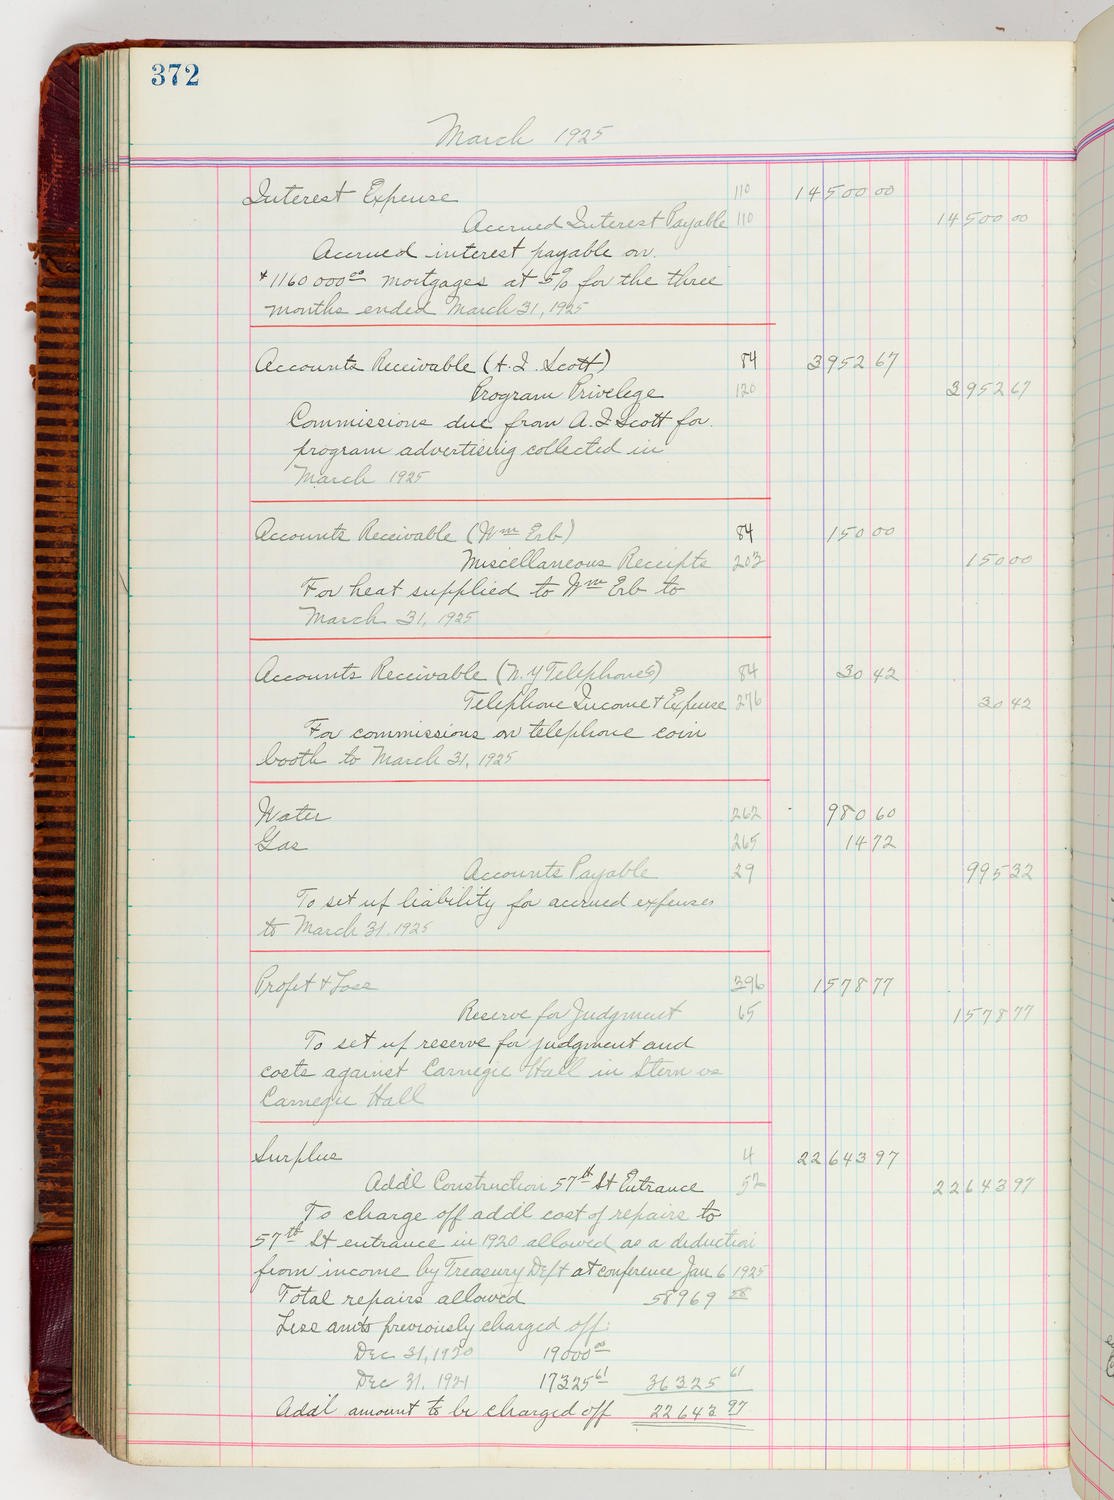 372
March 1925
Interest Expense 110 14500 00
Accrued Interest Payable 110 14500 00
Accrued interest payable on
$1160000 00 mortgages at 5% for the three
months ended March 31, 1925
Accounts Receivable (A. I. Scott) 84 3952 67
Program Privelege 120 3952 67
Commissions due from A. I Scott for
program advertising collected in
March 1925
Accounts Receivable (Wm Erb) 84 150 00
Miscellaneous Receipts 203 150 00
For heat supplied to Wm Erb to
March 31, 1925
Accounts Receivable (N. Y Telephones) 84 30 42
Telephone Income & Expense 276 30 42
For commissions on telephone coin
booth to March 31, 1925
Water 262 980 60
Gas 265 14 72
Accounts Payable 29 995 32
To set up liability for accrued expenses
to March 31. 1925
Profit & Loss 396 1578 77
Reserve for Judgment 65 1578 77
To set up reserve for judgment and
costs against Carnegie Hall in Stern vs
Carnegie Hall
Surplus 4 22643 97
Add'l Construction 57th St Entrance 52 22643 97
To charge off addl cost of repairs to
57th St entrance in 1920 allowed as a deduction
from income by Treasury Dept at conference Jan 6 1925
Total repairs allowed 58969 58
Less amts previously charged off:
Dec 31, 1920 19000 00
Dec 31. 1921 17325 61 36325 61
Addl amount to be charged off 22643 97